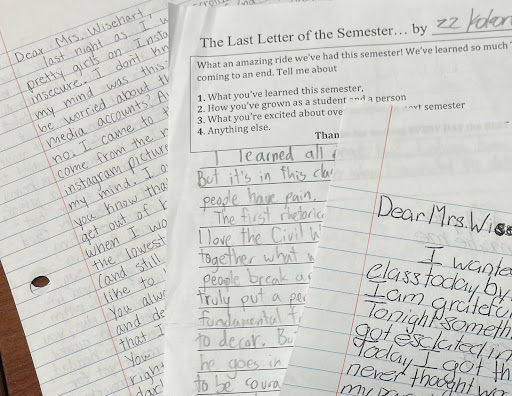 Dear Mrs. Wisehart,
last night as I w
pretty girls on Insta
insecure. I don't thin
my mind was this:
be worried about th
media accounts? A
no. I came to t
come from the n
instagram picture
my mind. I o
you know tha
get out of b
when I wo
the lowest
(and still
like to
You alwa
and de
that I
You
right
dar
The Last Letter of the Semester... by zz Kokor
What an amazing ride we've had this semester! We've learned so much
coming to an end. Tell me about
1. What you've learned this semester,
2. How you've grown as a student and a person
3. What you're excited about ove xt semester
4. Anything else.
Than
I learned all
But it's in this cla
people have pain.
The first rhetoric
I love the Civil W
together what w
people break a
Truly put a per
fundamental f
to decor. Bu
he goes in
to be coura
Dear Mrs. Wiss
I wante
class today by
I am gratefu
Tonight someth
got esclated in
Today I got th
never thought wo
my